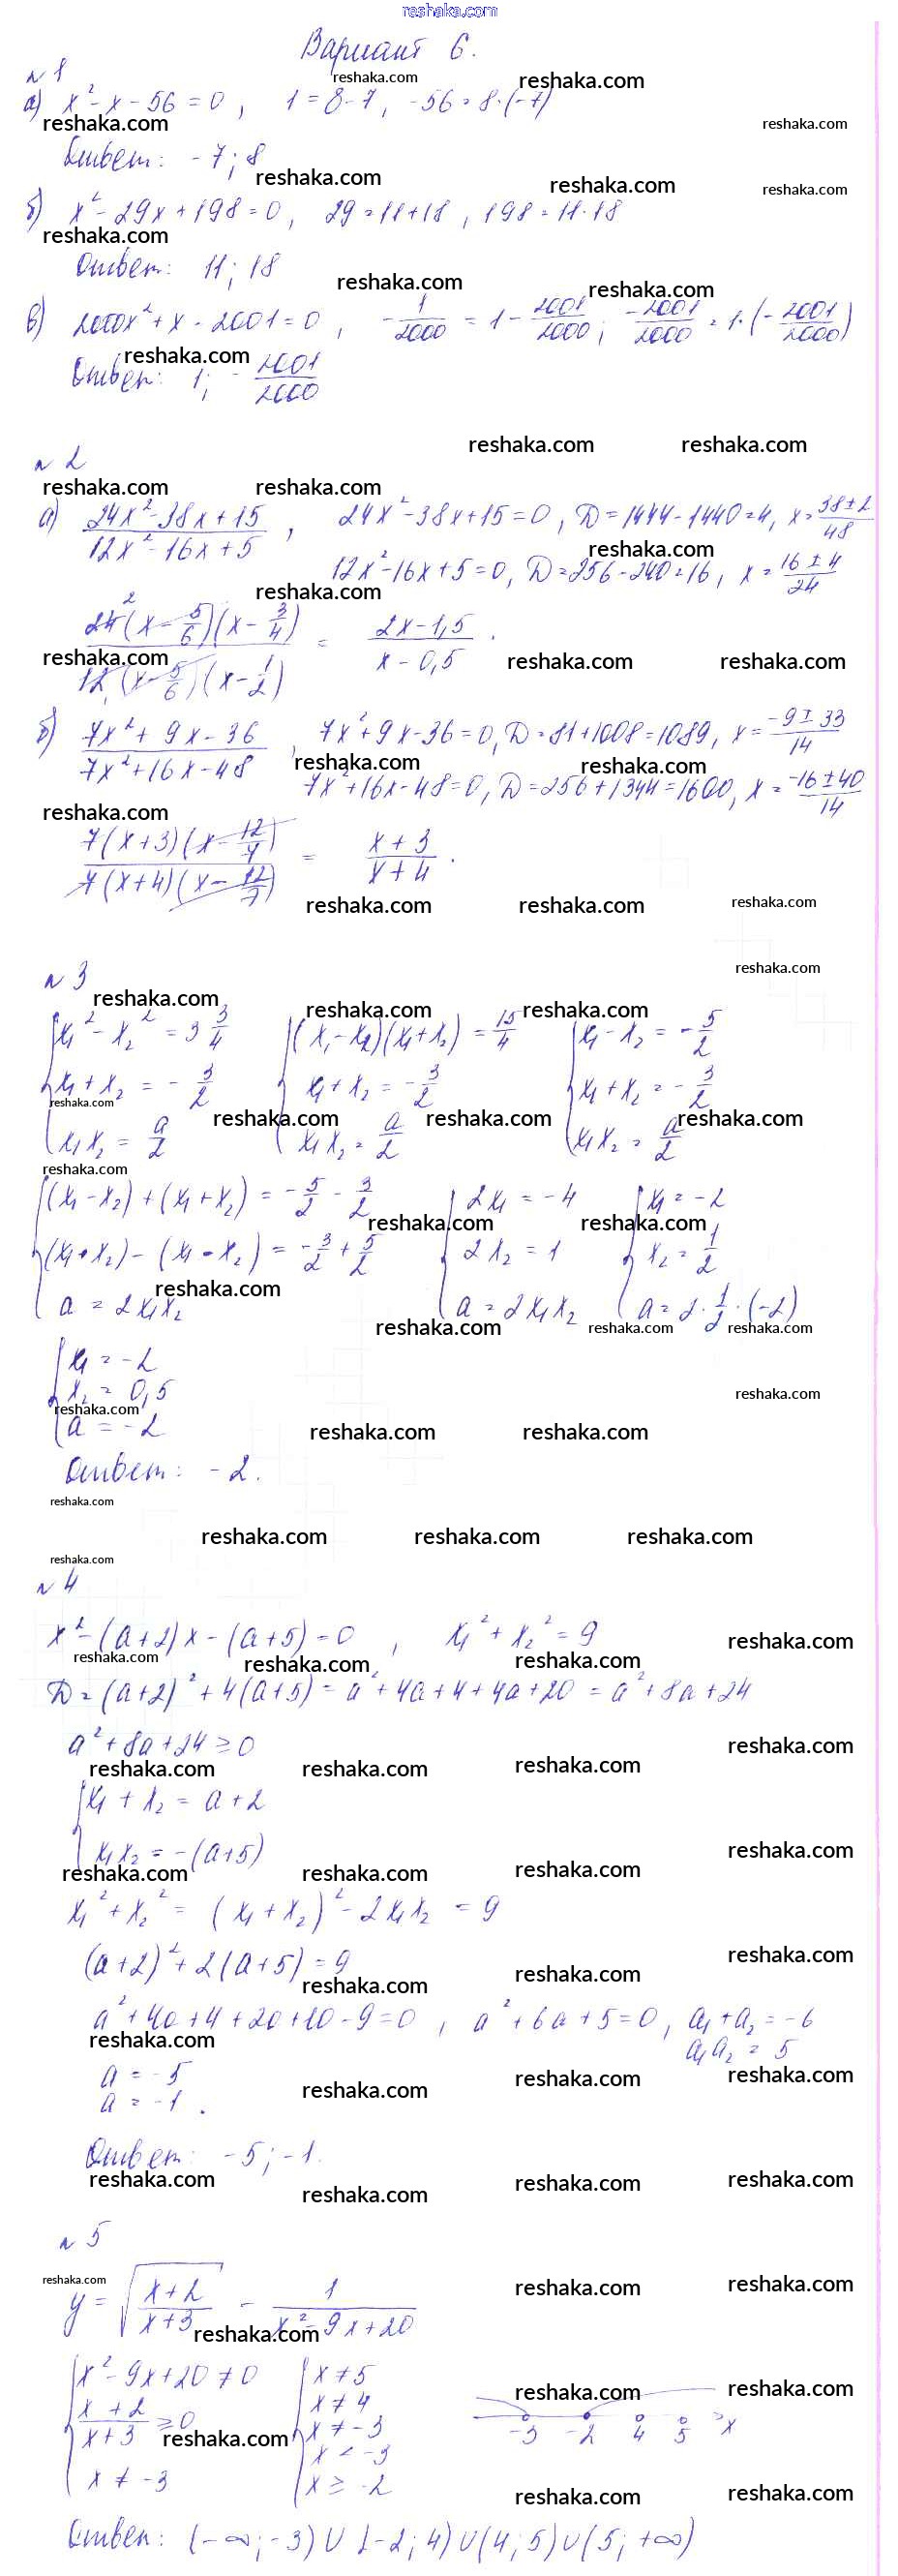 reshaka.com
Вариант 6.
№1
а) x² - x - 56 = 0, 1 = 8 - 7, -56 = 8·(-7)
Ответ: -7; 8
б) x² - 29x + 198 = 0, 29 = 11 + 18, 198 = 11·18
Ответ: 11; 18
в) 2000x² + x - 2001 = 0, -1/2000 = 1 - 2001/2000; -2001/2000 = 1·(-2001/2000)
Ответ: 1; -2001/2000
№2
а) (24x² - 38x + 15)/(12x² - 16x + 5), 24x² - 38x + 15 = 0, D = 1444 - 1440 = 4, x = (38 ± 2)/48
12x² - 16x + 5 = 0, D = 256 - 240 = 16, x = (16 ± 4)/24
24(x - 5/6)(x - 3/4) / 12(x - 5/6)(x - 1/2) = (2x - 1,5)/(x - 0,5).
б) (7x² + 9x - 36)/(7x² + 16x - 48), 7x² + 9x - 36 = 0, D = 81 + 1008 = 1089, x = (-9 ± 33)/14
7x² + 16x - 48 = 0, D = 256 + 1344 = 1600, x = (-16 ± 40)/14
7(x + 3)(x - 12/7) / 7(x + 4)(x - 12/7) = (x + 3)/(x + 4).
№3
{x₁² - x₂² = 3 3/4 {(x₁ - x₂)(x₁ + x₂) = 15/4 {x₁ - x₂ = -5/2
x₁ + x₂ = -3/2 x₁ + x₂ = -3/2 x₁ + x₂ = -3/2
x₁x₂ = a/2 x₁x₂ = a/2 x₁x₂ = a/2
{(x₁ - x₂) + (x₁ + x₂) = -5/2 - 3/2 {2x₁ = -4 {x₁ = -2
(x₁ + x₂) - (x₁ - x₂) = -3/2 + 5/2 2x₂ = 1 x₂ = 1/2
a = 2x₁x₂ a = 2x₁x₂ a = 2·1/2·(-2)
{x₁ = -2
x₂ = 0,5
a = -2
Ответ: -2.
№4
x² - (a + 2)x - (a + 5) = 0, x₁² + x₂² = 9
D = (a + 2)² + 4(a + 5) = a² + 4a + 4 + 4a + 20 = a² + 8a + 24
a² + 8a + 24 ≥ 0
{x₁ + x₂ = a + 2
x₁x₂ = -(a + 5)
x₁² + x₂² = (x₁ + x₂)² - 2x₁x₂ = 9
(a + 2)² + 2(a + 5) = 9
a² + 4a + 4 + 2a + 10 - 9 = 0, a² + 6a + 5 = 0, a₁ + a₂ = -6
a₁a₂ = 5
a = -5
a = -1.
Ответ: -5; -1.
№5
y = √((x + 2)/(x + 3)) - 1/(x² - 9x + 20)
{x² - 9x + 20 ≠ 0 {x ≠ 5
(x + 2)/(x + 3) ≥ 0 x ≠ 4
x ≠ -3 x ≠ -3
x < -3
x ≥ -2
-3 -2 4 5 x
Ответ: (-∞; -3) ∪ [-2; 4) ∪ (4; 5) ∪ (5; +∞)